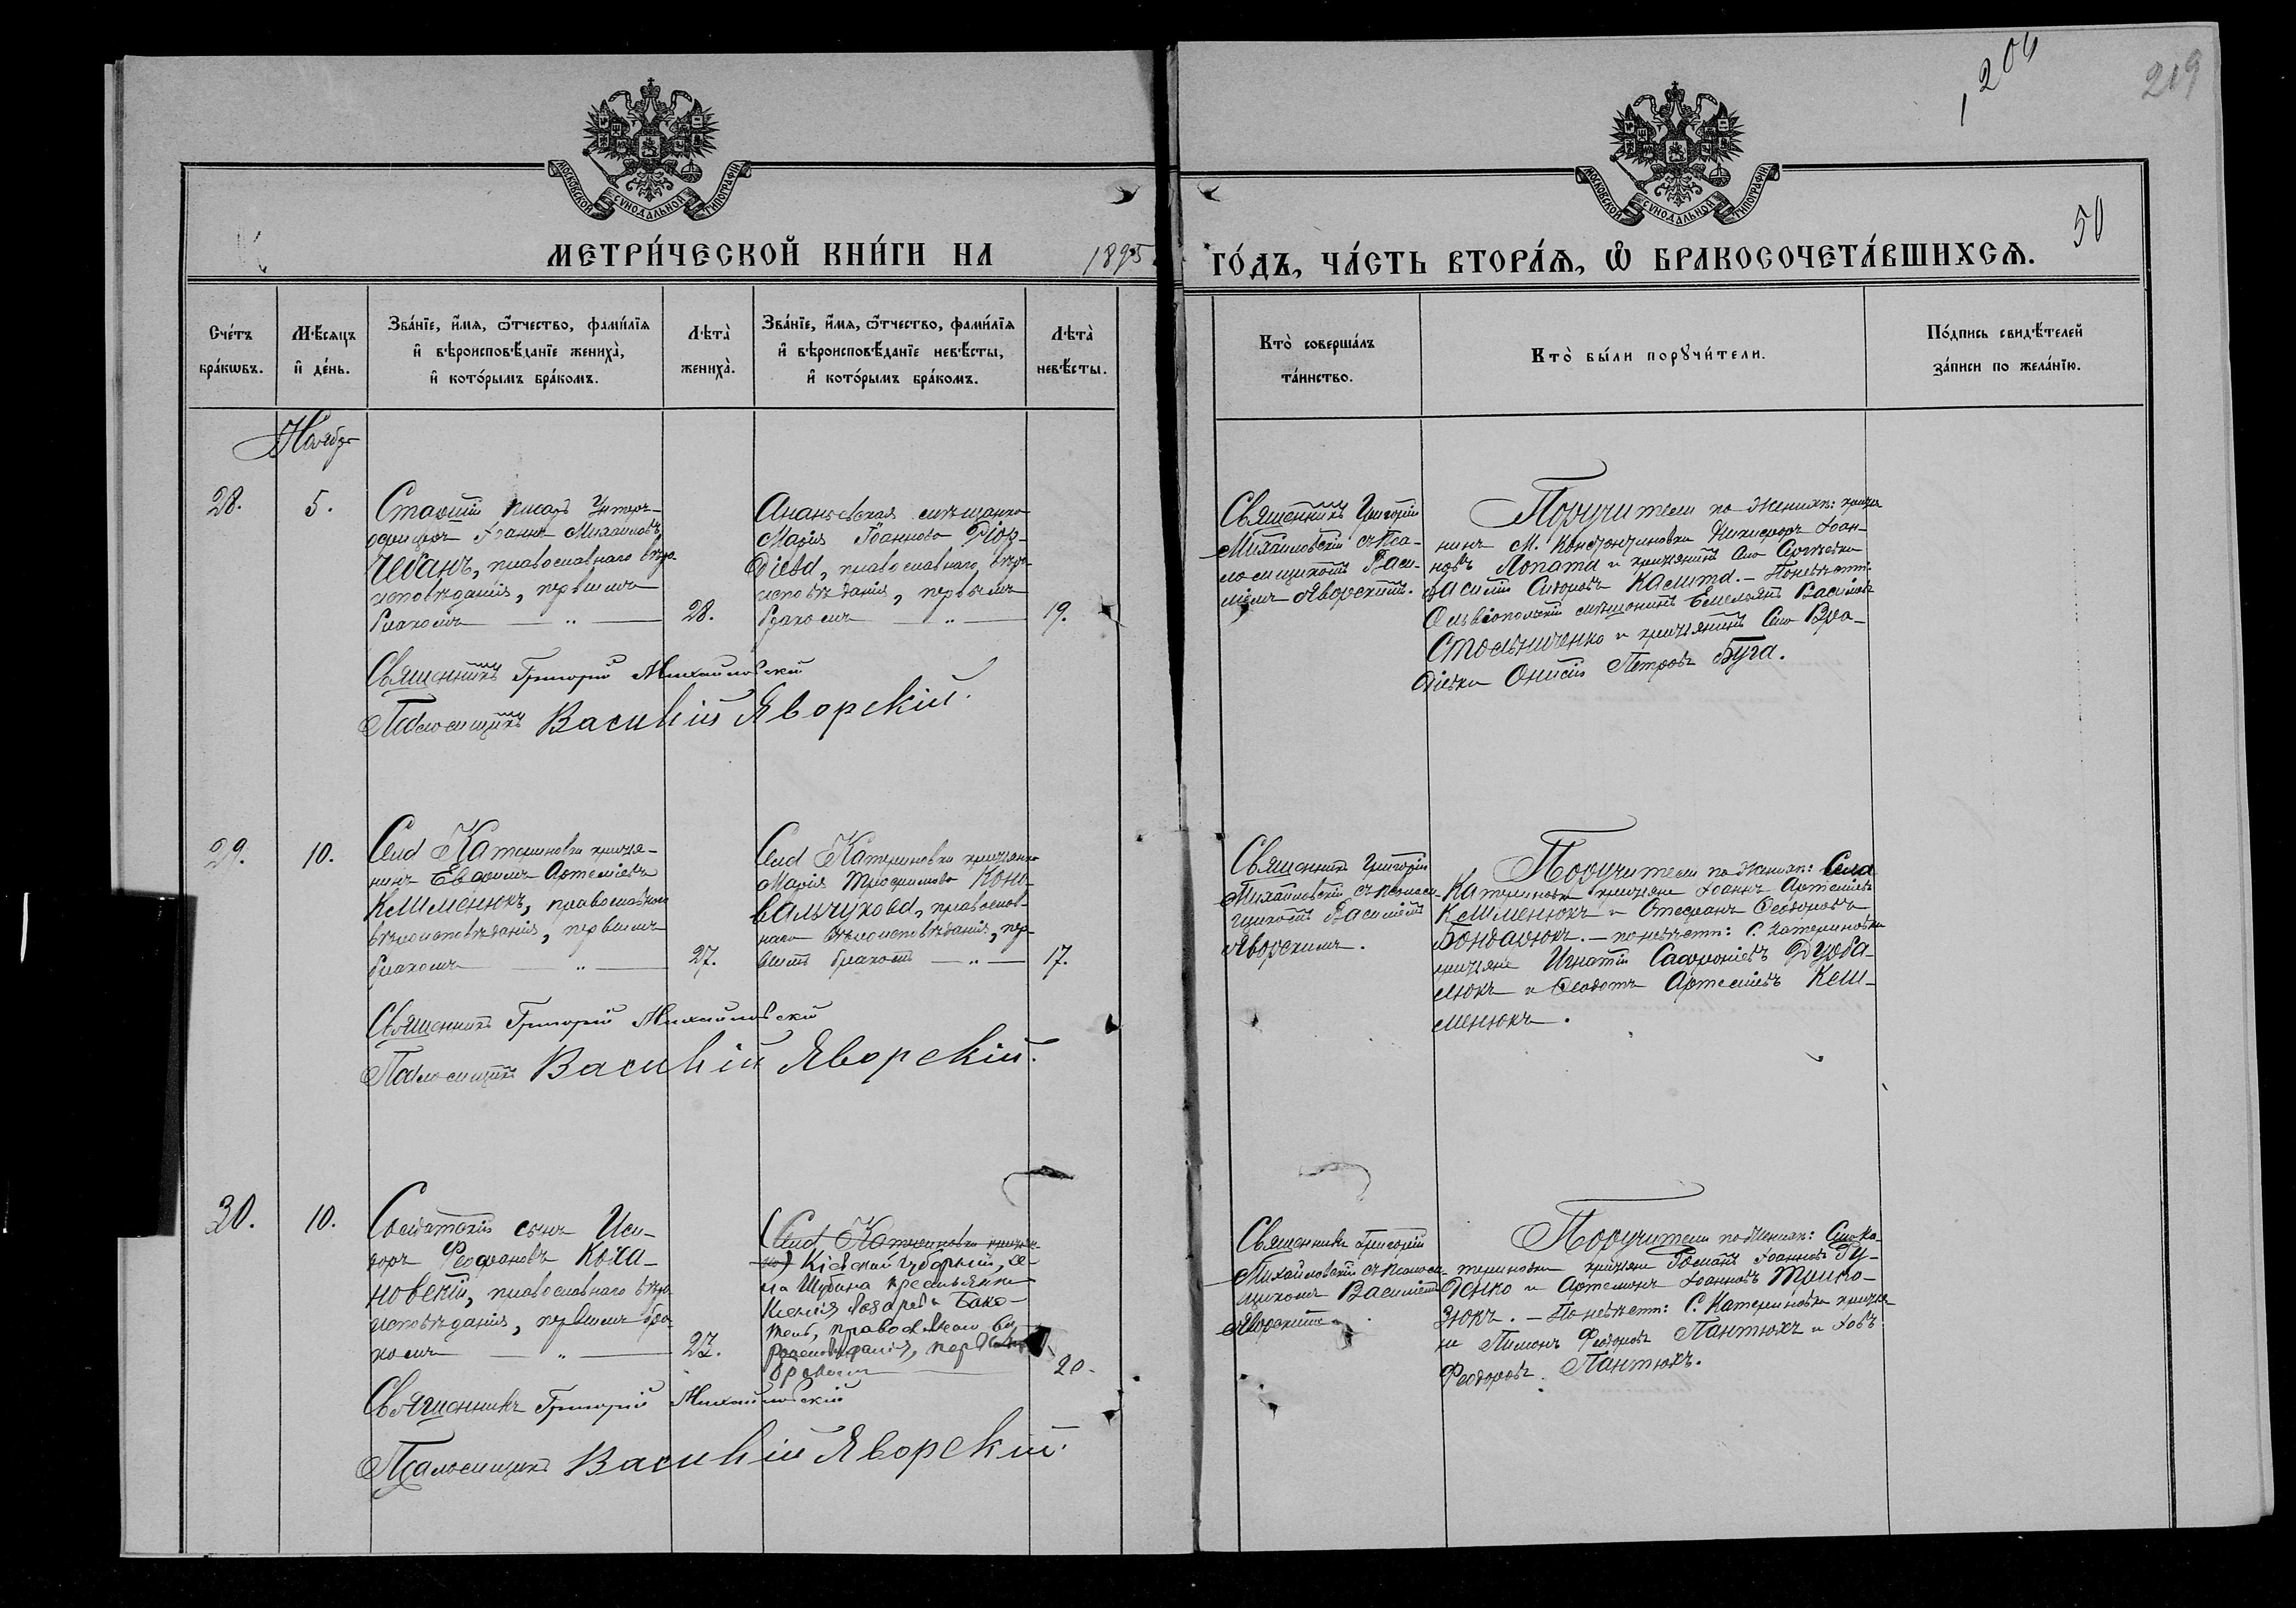 206
219
50
МОСКОВСКОЙ СѴНОДАЛЬНОЙ ТИПОГРАФІИ
МОСКОВСКОЙ СѴНОДАЛЬНОЙ ТИПОГРАФІИ
МЕТРИ́ЧЕСКОЙ КНИ́ГИ НА 1895
ГО́ДЪ, ЧА́СТЬ ВТОРА́Ѧ, Ѡ҆ БРАКОСОЧЕТА́ВШИХСѦ.
Сче́тъ бра́кѡвъ.
Мѣ́сѧцъ и҆ де́нь.
Зва́нїе, и҆́мѧ, ѻ҆́тчество, фами́лїѧ и҆ вѣроисповѣ́данїе жениха̀, и҆ кото́рымъ бра́комъ.
Лѣта̀ жениха̀.
Зва́нїе, и҆́мѧ, ѻ҆́тчество, фами́лїѧ и҆ вѣроисповѣ́данїе невѣ́сты, и҆ кото́рымъ бра́комъ.
Лѣта̀ невѣ́сты.
Кто̀ соверша́лъ та́инство.
Кто̀ бы́ли порꙋчи́тели.
По́дпись свидѣ́телей за́писи по жела́нїю.
Ноябрь
28.
5.
Старшій писарь Унтеръ-
офицеръ Іоаннъ Михаиловъ
Чебанъ, православнаго вѣро-
исповѣданія, первымъ
бракомъ — „ —
28.
Ананьевская мѣщанка
Марія Іоаннова
православнаго вѣро-
исповѣданія, первымъ
бракомъ — „ —
19.
Священникъ Григорій
Михайловскій съ Пса-
ломщикомъ Васи-
ліемъ Яворскимъ.
Поручители по женихѣ: крестья-
нинъ М. Константиновки Никифоръ Іоан-
новъ Лопата и крестьянинъ села
Василій Сидоровъ Калита. — По невѣстѣ:
Ольвіопольскій мѣщанинъ Емельянъ Васильевъ
Стольниченко и крестьянинъ села Вра-
діевки Онисій Петровъ Буга.
Священникъ Григорій Михайловскій
Псаломщикъ Василій Яворскій.
29.
10.
Села Катериновки крестья-
нинъ Евфимъ Артеміевъ
Кешменюкъ, православнаго
вѣроисповѣданія, первымъ
бракомъ — „ —
27.
Села Катериновки крестьянка
Марія Трофимова Кони-
вальчукова, православ-
наго вѣроисповѣданія, пер-
вымъ бракомъ — „ —
17.
Священникъ Григорій
Михайловскій съ псалом-
щикомъ Василіемъ
Яворскимъ.
Поручители по женихѣ: Села
Катериновки крестьяне Іоаннъ Артеміевъ
Кешменюкъ и Стефанъ Ѳеодоровъ
Бондарюкъ. — по невѣстѣ: С. Катериновки
крестьяне Игнатій Сафроніевъ
и Ѳеодотъ Артеміевъ Кеш-
менюкъ.
Священникъ Григорій Михайловскій
Псаломщикъ Василій Яворскій.
30.
10.
Солдатскій сынъ Иси-
доръ Феофановъ Коха-
новскій, православнаго вѣро-
исповѣданія, первымъ бра-
комъ — „ —
23.
Села Катериновки
Кіевской губерніи, се-
ла Шубина крестьянка
Ксенія Лазарева
православнаго вѣ-
роисповѣданія, первымъ
бракомъ
20.
Священникъ Григорій
Михайловскій съ псалом-
щикомъ Василіемъ
Яворскимъ.
Поручители по женихѣ: Села Ка-
териновки крестьяне Романъ Іоанновъ Ру-
денко и Артемонъ Іоанновъ
— По невѣстѣ: С. Катериновки крестья-
не Пименъ Феодоровъ Пантюхъ и Іовъ
Феодоровъ Пантюхъ.
Священникъ Григорій Михайловскій
Псаломщикъ Василій Яворскій.